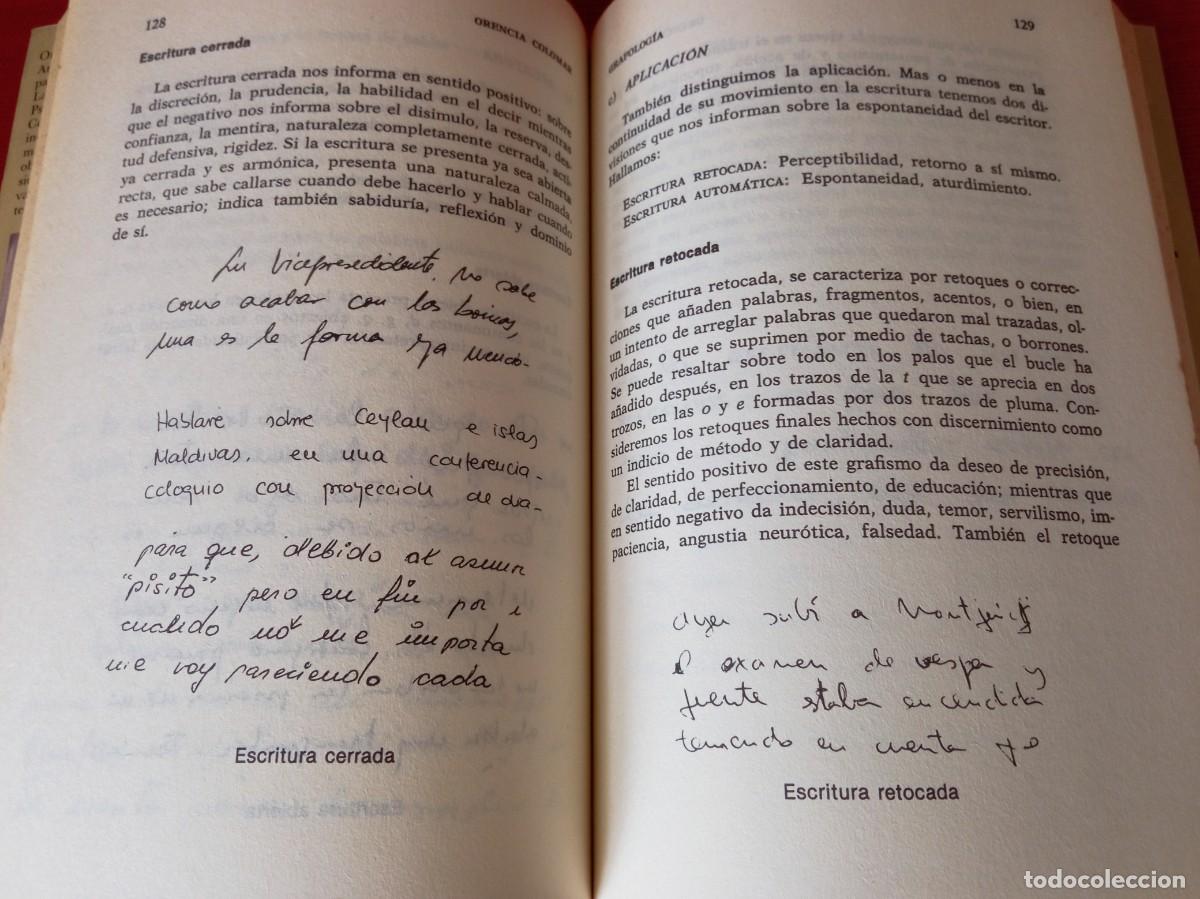 128
ORENCIA COLOMAR
Escritura cerrada
La escritura cerrada nos informa en sentido positivo: sobre
la discreción, la prudencia, la habilidad en el decir mientras
que el negativo nos informa sobre el disimulo, la reserva, des-
confianza, la mentira, naturaleza completamente cerrada, acti-
tud defensiva, rigidez. Si la escritura se presenta ya sea abierta
ya cerrada y es armónica, presenta una naturaleza calmada,
recta, que sabe callarse cuando debe hacerlo y hablar cuando
es necesario; indica también sabiduría, reflexión y dominio
de sí.
No sabe
como acabar con los
una es la forma
Hablaré sobre Ceylan e islas
Maldivas, en una conferencia-
coloquio con proyección de dia-
para que, debido al asun
"pisito", pero en fin por
cuando no me importa
me voy pareciendo cada
Escritura cerrada
GRAFOLOGÍA
129
c) APLICACIÓN
También distinguimos la aplicación. Mas o menos en la
continuidad de su movimiento en la escritura tenemos dos di-
visiones que nos informan sobre la espontaneidad del escritor.
Hallamos:
ESCRITURA RETOCADA: Perceptibilidad, retorno a sí mismo.
ESCRITURA AUTOMÁTICA: Espontaneidad, aturdimiento.
Escritura retocada
La escritura retocada, se caracteriza por retoques o correc-
ciones que añaden palabras, fragmentos, acentos, o bien, en
un intento de arreglar palabras que quedaron mal trazadas, ol-
vidadas, o que se suprimen por medio de tachas, o borrones.
Se puede resaltar sobre todo en los palos que el bucle ha
añadido después, en los trazos de la t que se aprecia en dos
trozos, en las o y e formadas por dos trazos de pluma. Con-
sideremos los retoques finales hechos con discernimiento como
un indicio de método y de claridad.
El sentido positivo de este grafismo da deseo de precisión,
de claridad, de perfeccionamiento, de educación; mientras que
en sentido negativo da indecisión, duda, temor, servilismo, im-
paciencia, angustia neurótica, falsedad. También el retoque
ayer subí a Montjuich
examen de vespa y
fuente staba encendida
temando en cuenta yo
Escritura retocada
todocoleccion